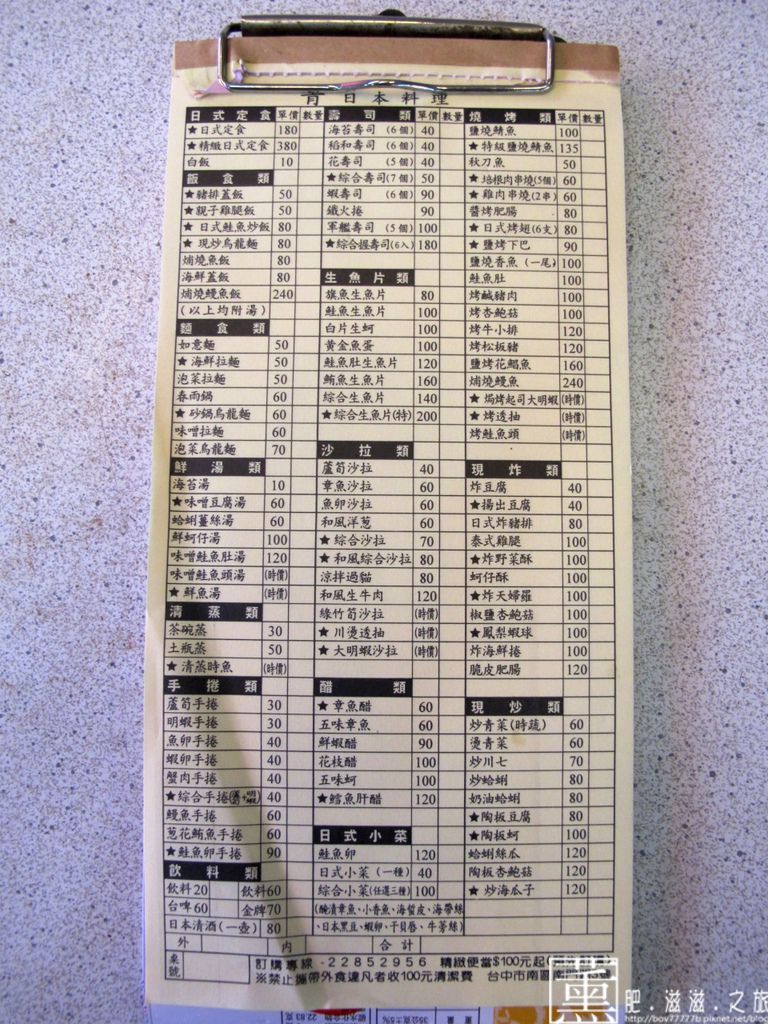 日本料理
日式定食 單價 數量
★日式定食 180
★精緻日式定食 380
白飯 10
飯食類
★豬排蓋飯 50
★親子雞腿飯 50
★日式鮭魚炒飯 80
★現炒烏龍麵 80
焗燒魚飯 80
海鮮蓋飯 80
焗燒鰻魚飯 240
(以上均附湯)
麵食類
如意麵 50
★海鮮拉麵 50
泡菜拉麵 50
春雨鍋 60
★砂鍋烏龍麵 60
味噌拉麵 60
泡菜烏龍麵 70
鮮湯類
海苔湯 10
★味噌豆腐湯 60
蛤蜊薑絲湯 60
鮮蚵仔湯 100
味噌鮭魚肚湯 120
味噌鮭魚頭湯 (時價)
★鮮魚湯 (時價)
清蒸類
茶碗蒸 30
土瓶蒸 50
★清蒸時魚 (時價)
手捲類
蘆筍手捲 30
明蝦手捲 30
魚卵手捲 40
蝦卵手捲 40
蟹肉手捲 40
★綜合手捲 40
鰻魚手捲 60
蔥花鮪魚手捲 60
★鮭魚卵手捲 90
飲料類
飲料20 飲料60
台啤60 金牌70
日本清酒(一壺) 80
壽司類 單價 數量
海苔壽司 (6個) 40
稻和壽司 (6個) 40
花壽司 (5個) 40
★綜合壽司(7個) 50
蝦壽司 (6個) 90
鐵火捲 90
軍艦壽司 (5個) 100
★綜合握壽司(6入) 180
生魚片類
旗魚生魚片 80
鮭魚生魚片 100
白片生蚵 100
黃金魚蛋 100
鮭魚肚生魚片 120
鮪魚生魚片 160
綜合生魚片 140
★綜合生魚片(特) 200
沙拉類
蘆筍沙拉 40
章魚沙拉 60
魚卵沙拉 60
和風洋蔥 60
★綜合沙拉 70
★和風綜合沙拉 80
涼拌過貓 80
和風生牛肉 120
綠竹筍沙拉 (時價)
★川燙透抽 (時價)
★大明蝦沙拉 (時價)
醋類
★章魚醋 60
五味章魚 60
鮮蝦醋 90
花枝醋 100
五味蚵 100
★鱈魚肝醋 120
日式小菜
鮭魚卵 120
日式小菜(一種) 40
綜合小菜(任選三種) 100
(醃漬章魚、小香魚、海蜇皮、海帶絲
、日本黑豆、蝦卵、干貝唇、牛蒡絲)
燒烤類 單價 數量
鹽燒鯖魚 100
★特級鹽燒鯖魚 135
秋刀魚 50
★培根肉串燒(5個) 60
★雞肉串燒(2串) 60
醬烤肥腸 80
★日式烤翅(6支) 80
★鹽烤下巴 90
鹽燒香魚(一尾) 100
鮭魚肚 100
烤鹹豬肉 100
烤杏鮑菇 100
烤牛小排 120
烤松板豬 120
鹽烤花鯧魚 160
焗燒鰻魚 240
★焗烤起司大明蝦 (時價)
★烤透抽 (時價)
烤鮭魚頭 (時價)
現炸類
炸豆腐 40
★揚出豆腐 40
日式炸豬排 80
泰式雞腿 100
★炸野菜酥 100
蚵仔酥 100
★炸天婦羅 100
椒鹽杏鮑菇 100
★鳳梨蝦球 100
炸海鮮捲 100
脆皮肥腸 120
現炒類
炒青菜(時蔬) 60
燙青菜 60
炒川七 70
炒蛤蜊 80
奶油蛤蜊 80
★陶板豆腐 80
★陶板蚵 100
蛤蜊絲瓜 120
陶板杏鮑菇 120
★炒海瓜子 120
外 內 合計
桌號
訂購專線-22852956 精緻便當$100元起
※禁止攜帶外食違凡者收100元清潔費 台中市南區
肥.滋滋.之旅